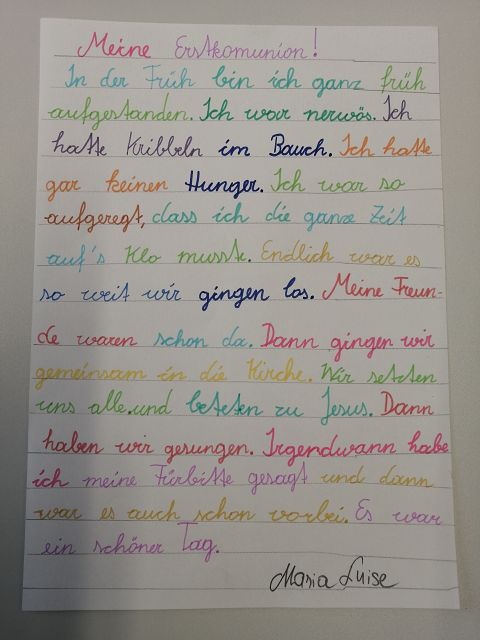 Meine Erstkomunion!
In der Früh bin ich ganz früh
aufgestanden. Ich war nervös. Ich
hatte Kribbeln im Bauch. Ich hatte
gar keinen Hunger. Ich war so
aufgeregt, dass ich die ganze Zeit
auf's Klo musste. Endlich war es
so weit wir gingen los. Meine Freun-
de waren schon da. Dann gingen wir
gemeinsam in die Kirche. Wir setzten
uns alle.und beteten zu Jesus. Dann
haben wir gesungen. Irgendwann habe
ich meine Fürbitte gesagt und dann
war es auch schon vorbei. Es war
ein schöner Tag.
Maria Luise